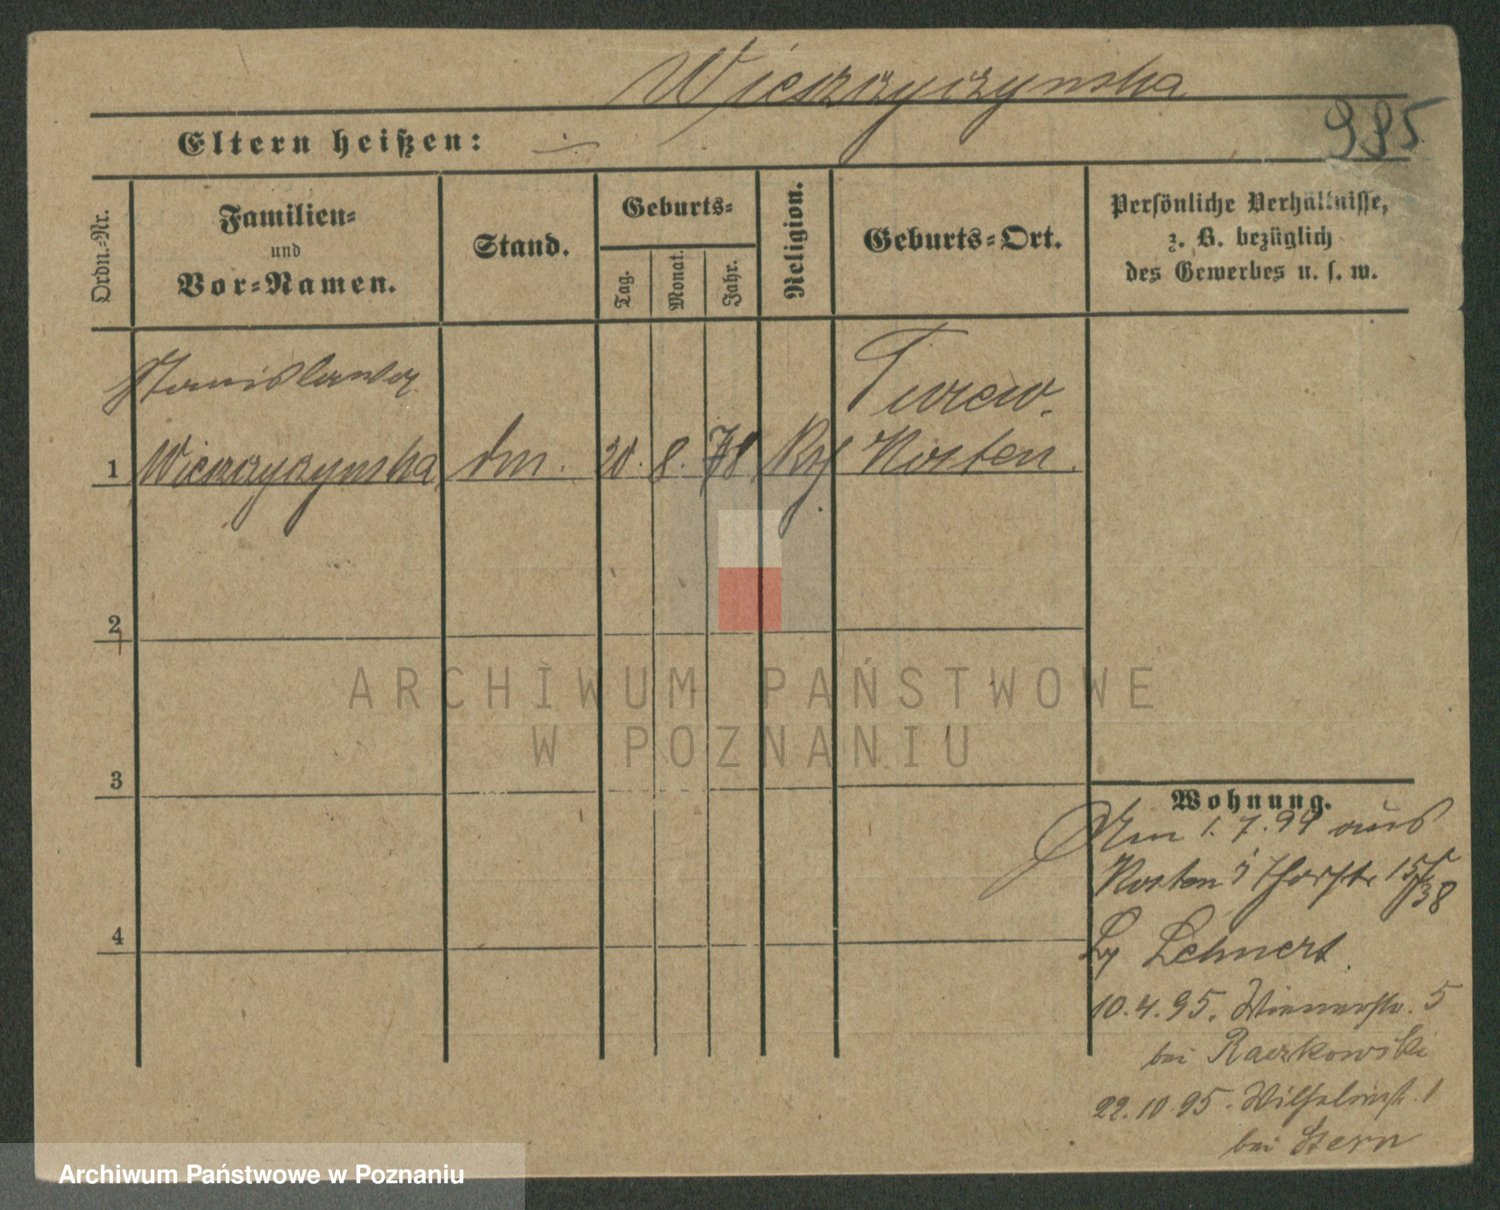 Wieszczyczynska
985
Eltern heißen:
Ordn.-Nr.
Familien-
und
Vor-Namen.
Stand.
Geburts-
Tag.
Monat.
Jahr.
Religion.
Geburts-Ort.
Persönliche Verhältnisse,
z. B. bezüglich
des Gewerbes u. s. w.
Stanislawa
Turew.
1 dm. 20. 8. 78 Kosten.
2
3
4
Wohnung.
Am 1. 7. 94 aus
Kosten 15/38
Lehnert
10.4.95. Wienerstr. 5
bei Raczkowski
22.10.95. Wilhelmstr. 1
bei Stern
ARCHIWUM PAŃSTWOWE
W POZNANIU
Archiwum Państwowe w Poznaniu